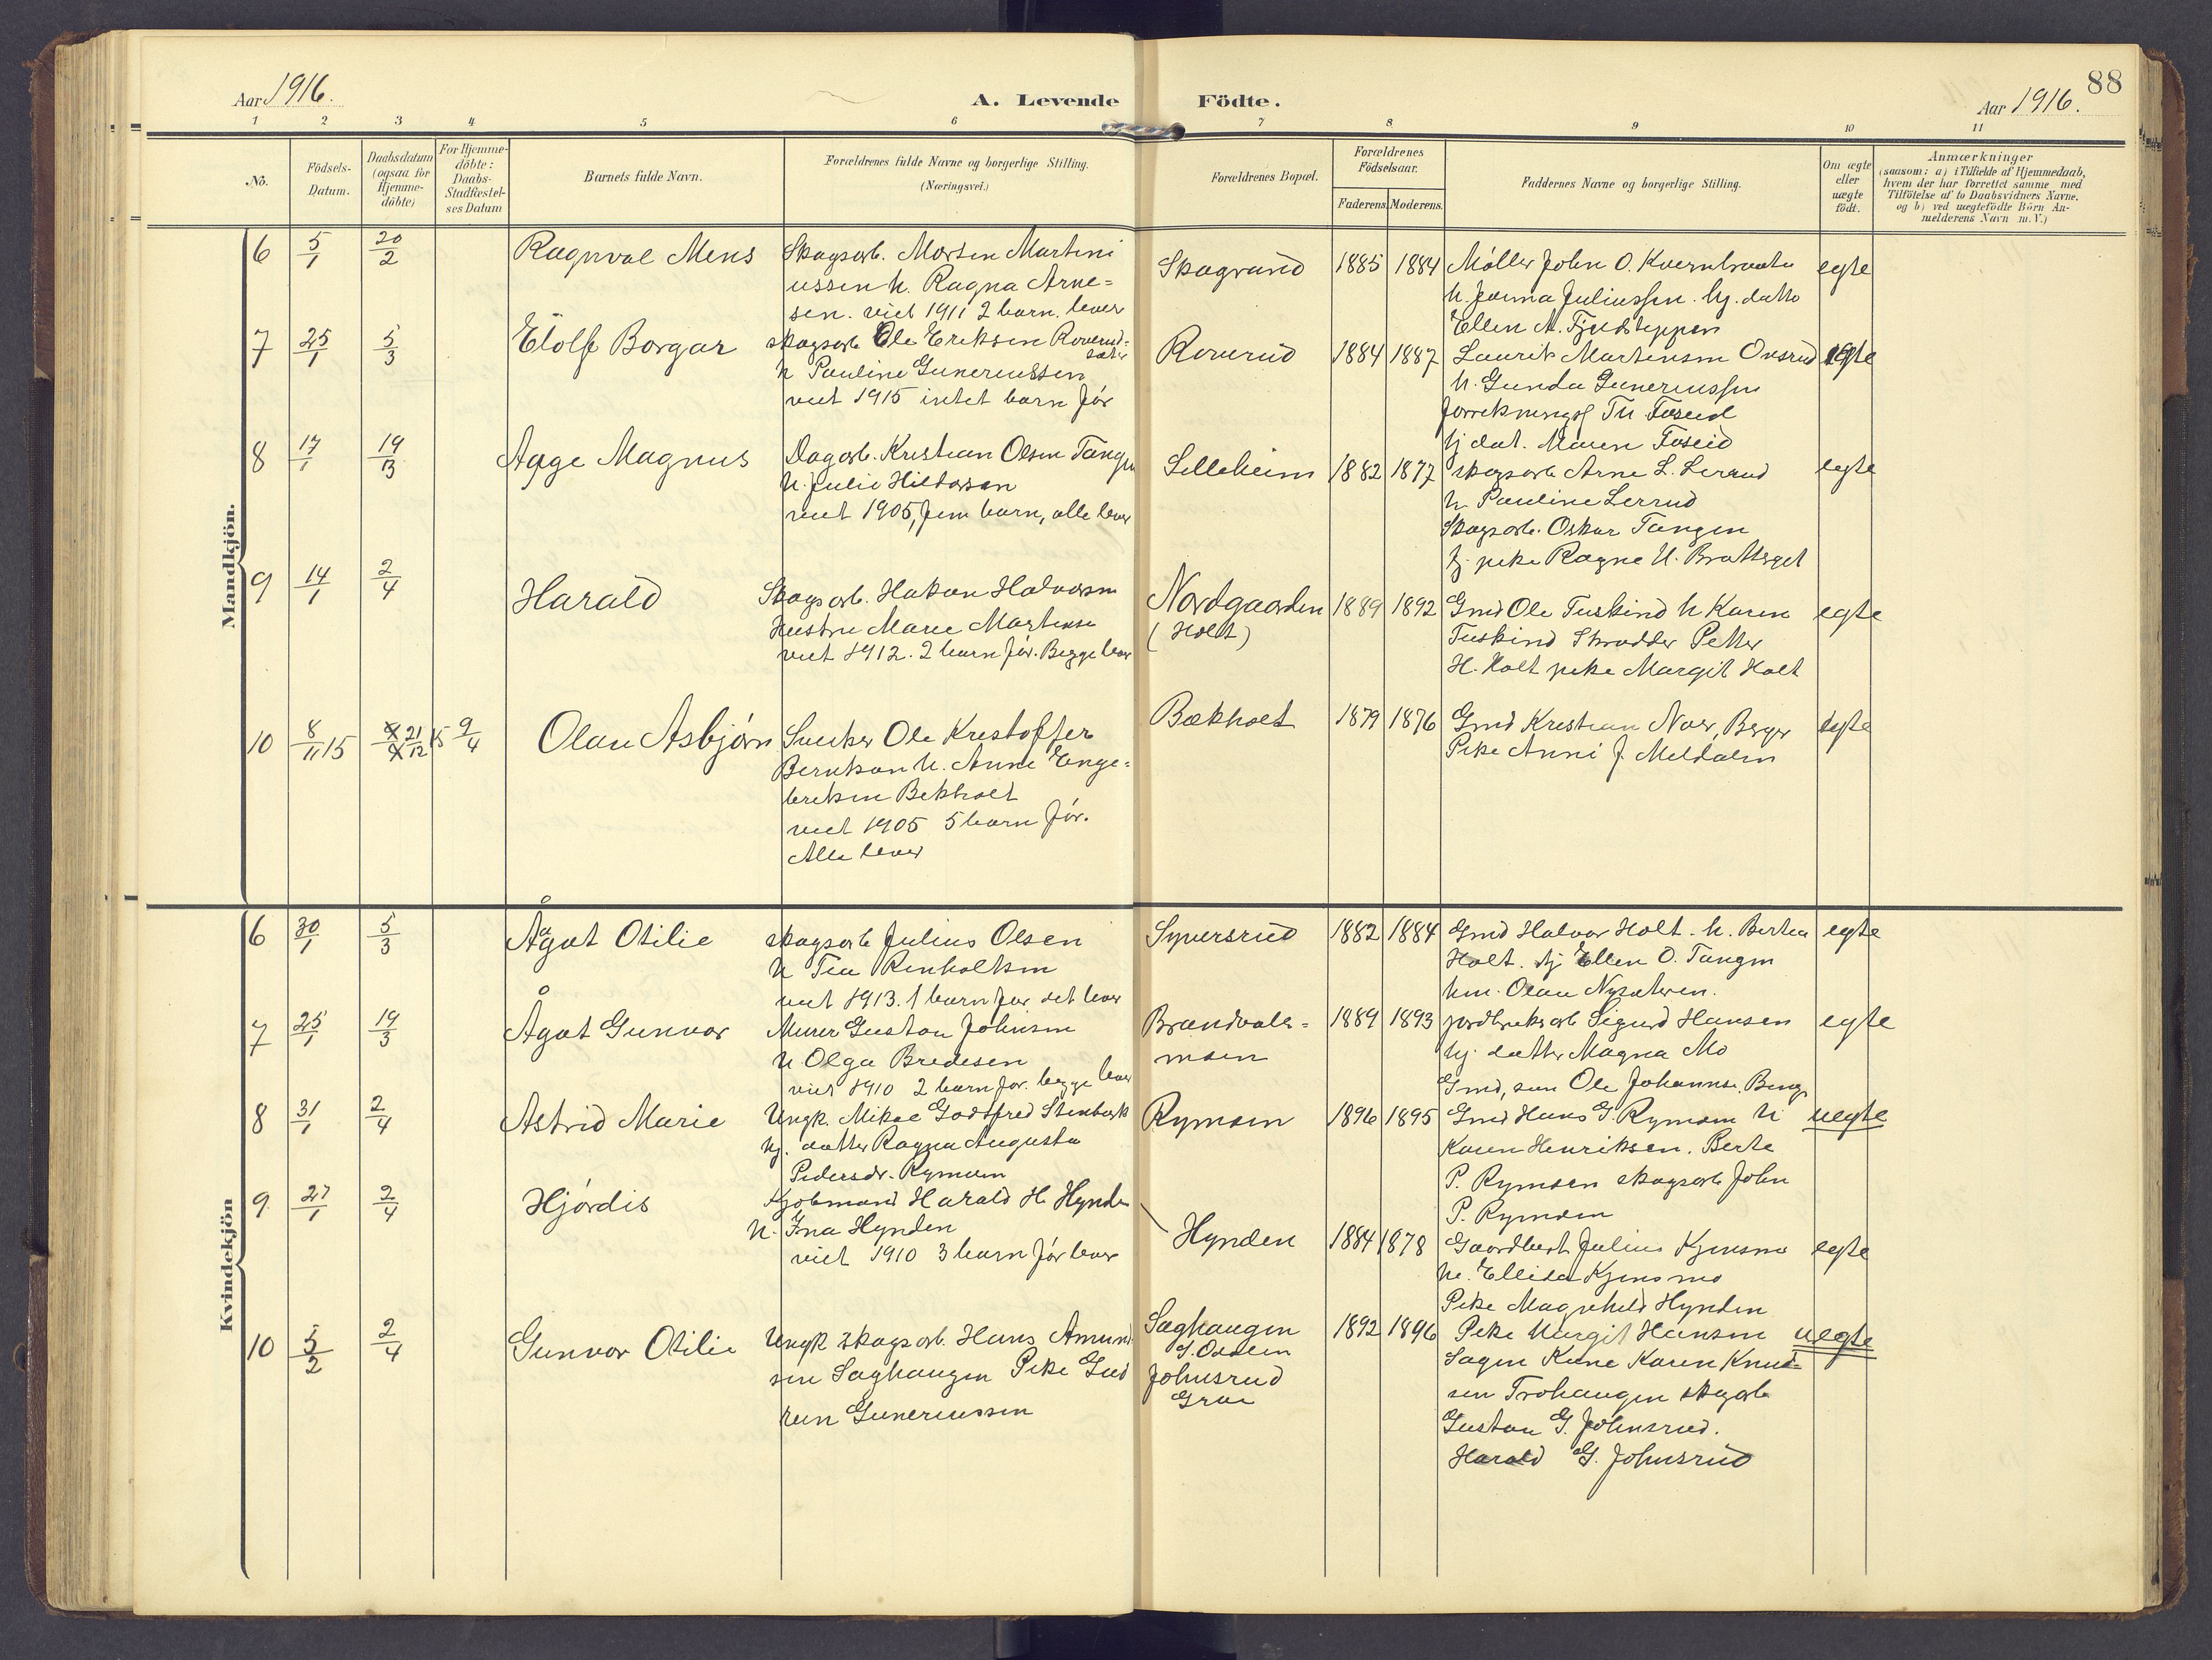 88
Aar 1916.
A. Levende Födte.
Aar 1916.
1 2 3 4 5 6 7 8 9 10 11
No.
Födsels-
Datum.
Daabsdatum
(ogsaa for
Hjemme-
döbte)
For Hjemme-
döbte:
Daabs-
Stadfæstel-
ses Datum
Barnets fulde Navn.
Forældrenes fulde Navne og borgerlige Stilling.
(Næringsvei.)
Forældrenes Bopæl.
Forældrenes
Födselsaar.
Faderens. Moderens.
Faddernes Navne og borgerlige Stilling.
Om ægte
eller
uægte
födt.
Anmærkninger
(saasom: a) i Tilfælde af Hjemmedaab,
hvem der har forrettet samme med
Tilföielse af to Daabsvidners Navne.
og b) ved uægtefödte Börn An-
melderens Navn m. V.)
Mandkjön.
6 5/1 20/2 Ragnval Mens
Skogsarb. Morten Martini
ussen h. Ragna Arne=
sen. viet 1911 2 barn. lever
Skogrund 1885 1884
Møller John O. Kvernbraata
h. Jonna Juliussen. hj. datto
Ellen A. Fjeldsteppen
egte
7 25/1 5/3 Elolf Borgar
skogsarb Ole Eriksen Roverud=
sæter
h Pauline Guneriussen
viet 1915 intet barn før
Roverud 1884 1887
Laurits Martinsen Ovsrud
h. Gunda Gunerius​sen
forretningsf Th. Foseid
hj dat. Maren Foseid
egte
8 17/1 19/3 Aage Magnus
Dagarb. Kristian Olsen Tangen
h. Julie Hildorsen
viet 1905, fem barn, alle lever
Lelleheim 1882 1877
skogsarb Arne L. Lerrud
h. Pauline Lerrud
Skogsarb. Oskar Tangen
hj. pike Ragna H. Bratberget
egte
9 14/1 2/4 Harald
Skogsarb. Hakon Halvorsen
Hustru Marie Martinse
viet 1912. 2 barn før. Begge lever
Nordgaarden
(Holt)
1889 1892
Gmd Ole Tuskind h Karen
Tuskind Skrædder Petter
H. Holt pike Margit Holt
egte
10 8/11 15 21/12 15 9/4 Olav Asbjørn
Snekker Ole Kristoffer
Berntsen h. Anne Enge=
bretsen Bekholt
viet 1905 5 barn før.
Alle lever
Bækholt 1879 1876
Gmd Kristian Noer, Berger
Pike Anni J. Meldalen
egte
Kvindekjön
6 30/1 5/3 Ågot Otilie
skogsarb Julius Olsen
h Tea Renholtsen
viet 1913. 1 barn før det lever
Syversrud 1882 1884
Gmd Halvor Holt. h. Berthea
Holt. hj Ellen O. Tangen
hm. Olau Nysæteren.
egte
7 25/1 19/3 Ågot Gunvor
Murer Gustav Johnsen
h. Olga Bredesen
viet 1910 2 barn før. begge lever
Brandvals=
moen
1889 1893
jordbruksarb Sigurd Hansen
hj. datter Magna Mo
Gmd, søn Ole Johannse. Berg
egte
8 31/1 2/4 Astrid Marie
Ungk. Mikal Godtfred Stenbæk
hj. datter Ragna Augusta
Pedersdr. Rymoen
Rymoen 1896 1895
Gmd Hans G. Rymoen h
Karen Henriksen. Berte
P. Rymoen skogsarb John
P. Rymoen
uegte
9 27/1 2/4 Hjørdis
Kjøbmand Harald H. Hynden
h. Ina Hynden
viet 1910 3 barn før lever
Hynden 1884 1878
Gaardbest Julius Kjensmo
h. Ellida Kjensmo
Pike Magnhild Hynden
egte
10 5/2 2/4 Gunvor Otilie
Ungk skogsarb. Hans Amund
sen Saghaugen Pike Gud
run Gunerius​sen
Saghaugen
S. Odalen
Johnsrud
Grue
1892 1896
Pike Margit Hansen
Sagen Kone Karen Knud=
sen Trohaugen skogarb
Gustav G. Johnsrud.
Harald G. Johnsrud
uegte